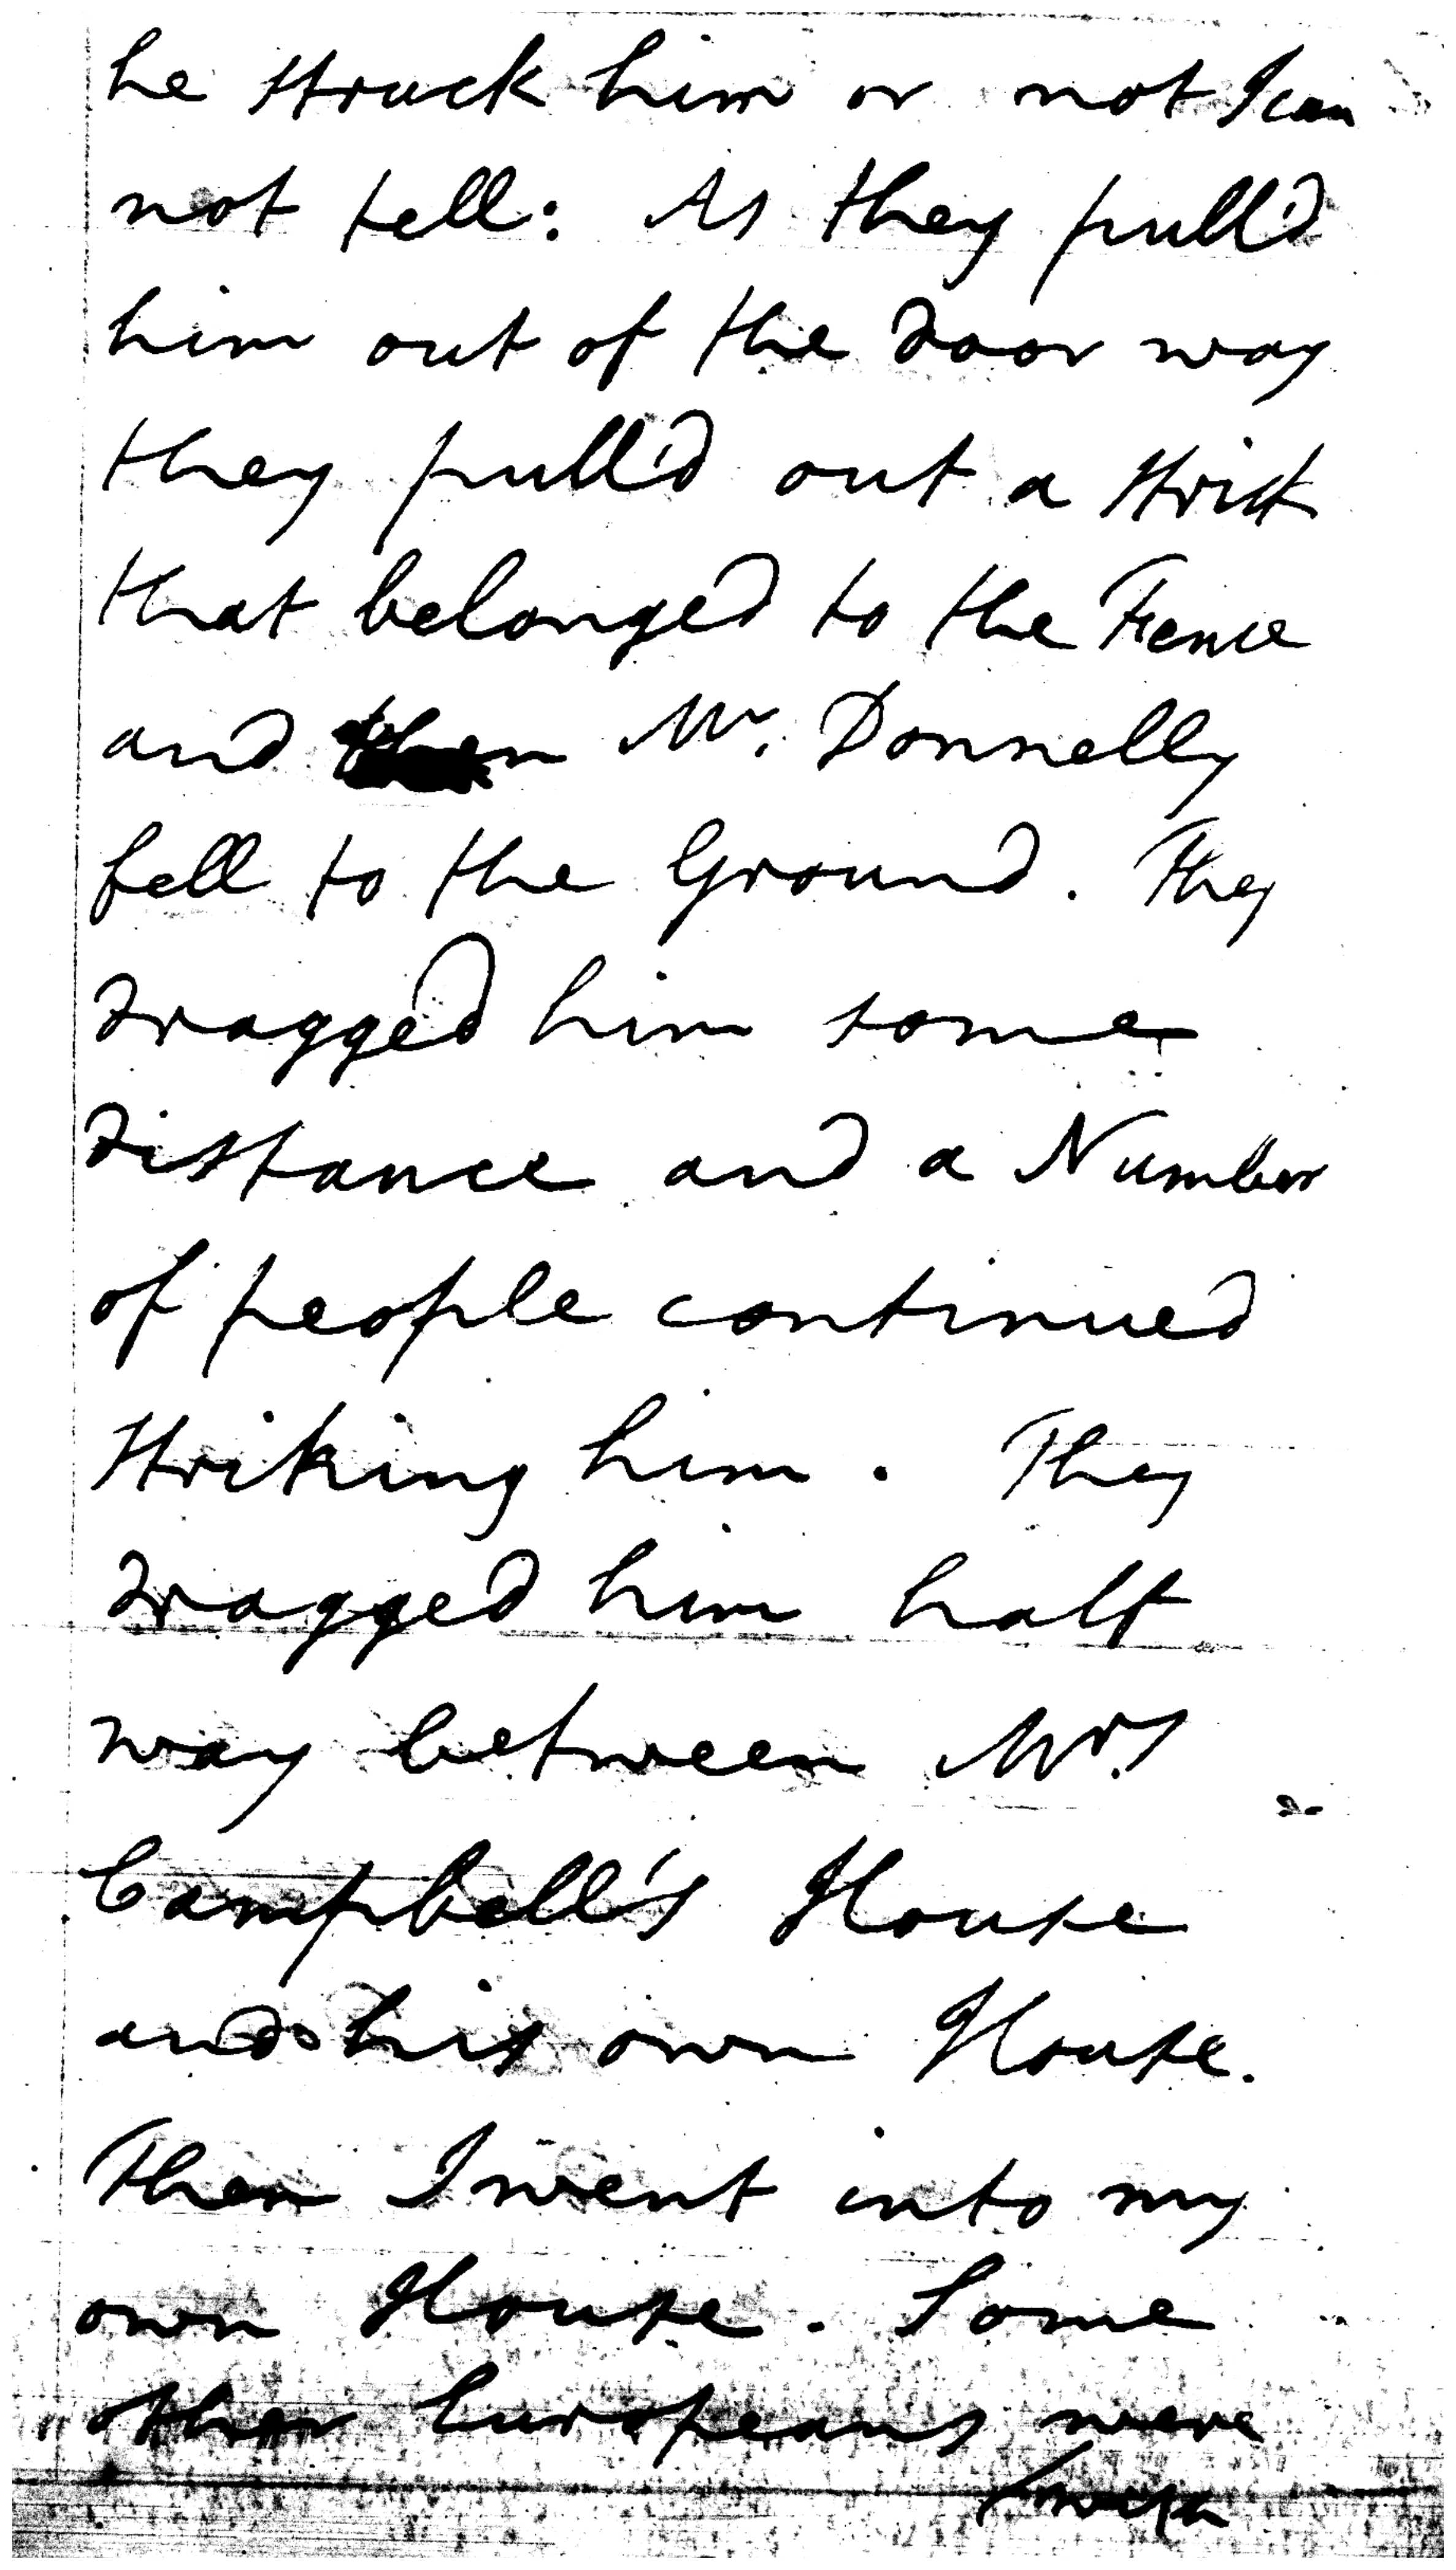 he struck him or not I can
not tell: As they pull'd
him out of the door way
they pull'd out a stick
that belonged to the Fence
and then Mr. Donnelly
fell to the Ground. They
dragged him some
distance and a Number
of people continued
striking him. They
dragged him half
way between Mrs
Campbell's House
and his own House.
Then I went into my
own House. Some
other Europeans were